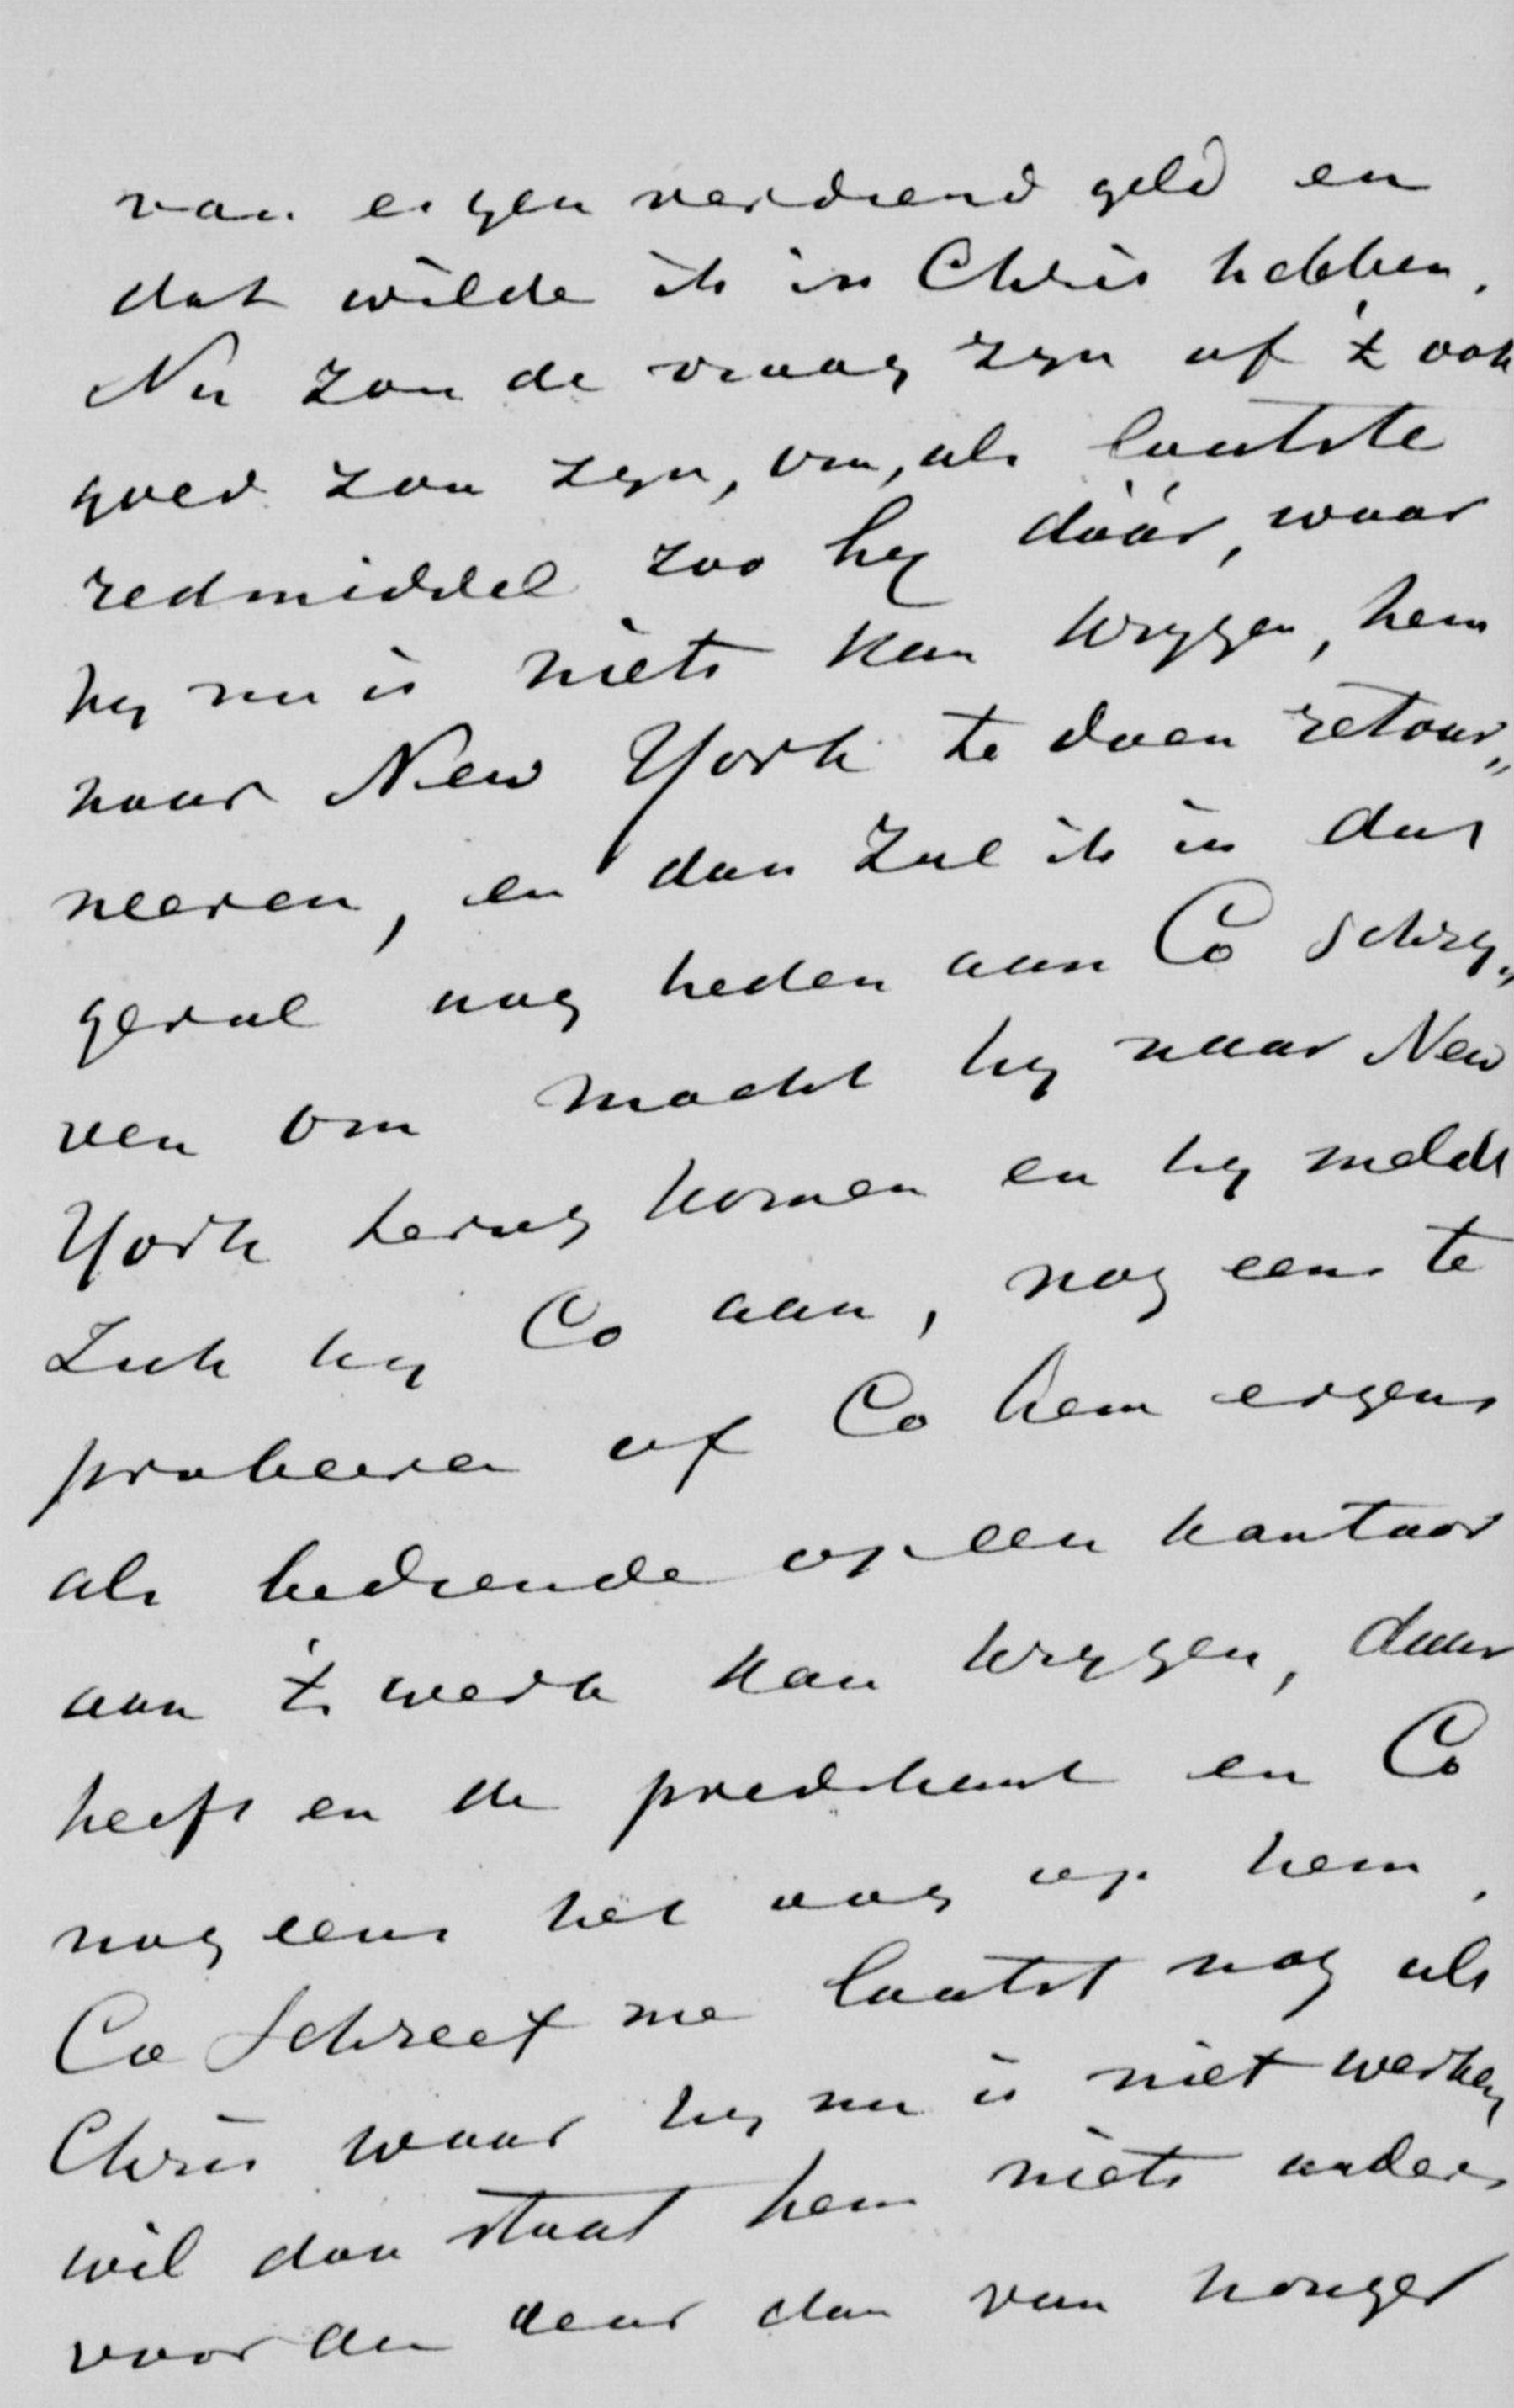 van eigen verdiend geld en
dat wilde ik in Chris hebben.
Nu zou de vraag zyn of 't ook
goed zou zyn, om, als laatste
redmiddel zoo hy dáár, waar
hy nu is niets kan krygen, hem
naar New York te doen retour„
neeren, en dan zal ik in dat
geval nog heden aan Co schry„
ven om mocht hy naar New
York terug komen en hy meldt
zich by Co aan, nog eens te
probeeren of Co hem ergens
als bediende op een kantoor
aan 't werk kan krygen, daar
heeft en de predikant en Co
nog eens het oog op hem.
Co schreef me laatst nog als
Chris waar hy nu is niet werken
wil dan staat hem niets anders
voor de deur dan van honger